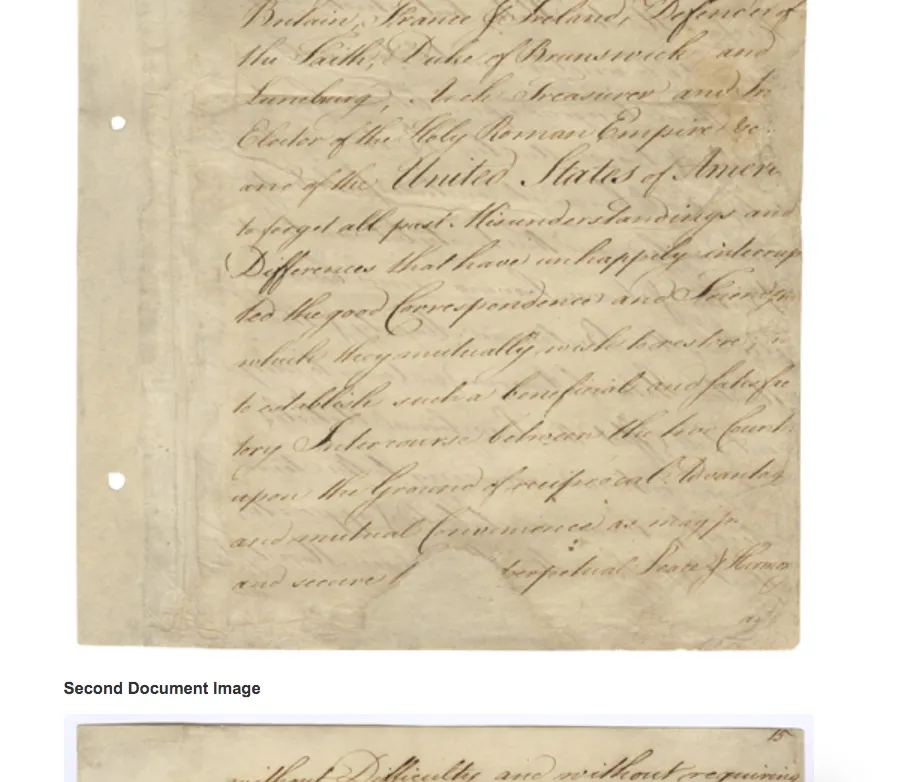 Britain, France & Ireland, Defender of
the Faith, Duke of Brunswick and
Luneburg, Arch Treasurer and
Elector of the Holy Roman Empire &c..
and of the United States of Ameri
to forget all past Misunderstandings and
Differences that have unhappily interrup
ted the good Correspondence and
which they mutually wish to restore;
to establish such a beneficial and satisfac
tory Intercourse between the two Count
upon the Ground of reciprocal Advantag
and mutual Convenience as may
and secure perpetual Peace & Harmon
Second Document Image
15
without Difficulty and without requiring